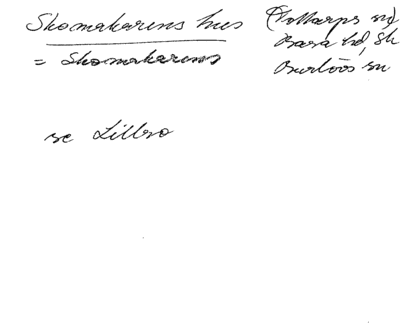 Skomakarens hus
= Skomakarens
(Tottarps sn)
Bara hd, Sk
Burlövs sn
se Lillbro